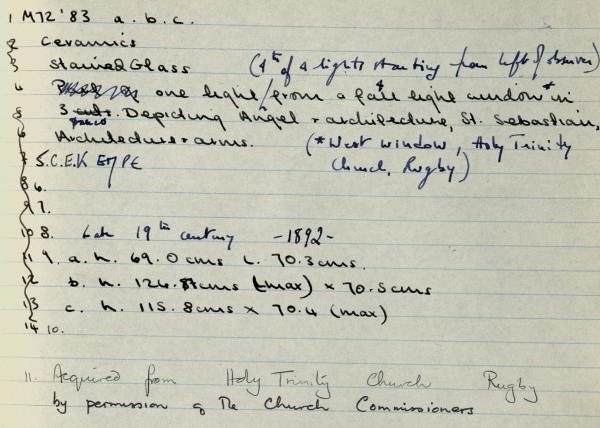 1 M72 '83 a. b. c.
2 Ceramics
3 Stained Glass (4th of 4 lights starting from left of observer)
4 one light/from a 4 light window * in
5 3 panels. Depicting Angel + architecture, St. Sebastian,
6 Architecture + arms. (* West window, Holy Trinity
7 5. C.E. KEMPE Church, Rugby)
8 6.
9 7.
10 8. Late 19th century - 1892 -
11 9. a. h. 69.0 cms L. 70.3 cms.
12 b. h. 126. cms (max) x 70.5 cms
13 c. h. 115.8 cms x 70.4 (max)
14 10.
11. Acquired from Holy Trinity Church Rugby
by permission of The Church Commissioners